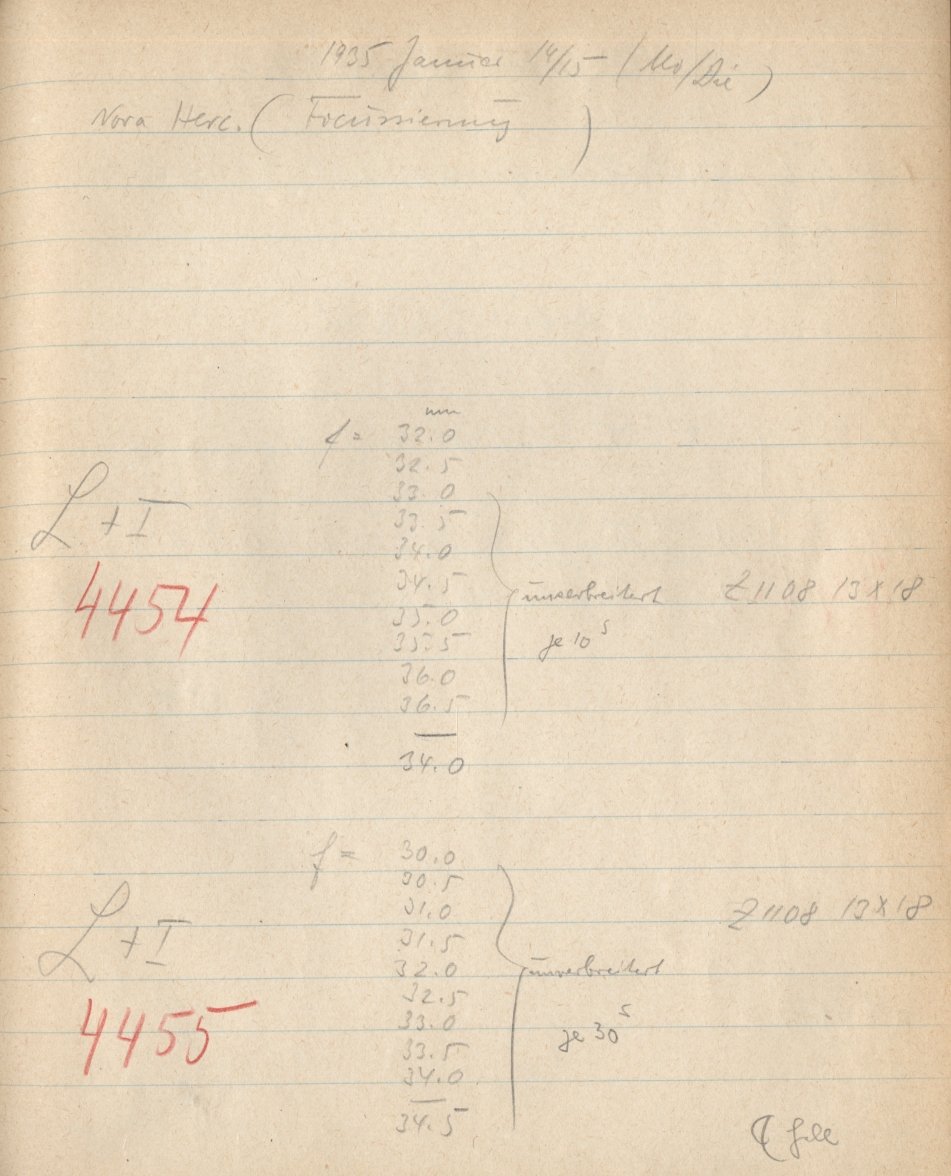 1935 Januar 14/15 (Mo/Die)
Nova Herc. (Focussierung)
mm
f = 32.0
32.5
33.0
L + I 33.5
34.0
4454 34.5 unverbreitert Z 1108 13 x 18
35.0
35.5 je 10 s
36.0
36.5
34.0
f = 30.0
30.5
31.0 Z 1108 13 x 18
L + I 31.5
32.0 unverbreitert
32.5
4455 33.0 je 30 s
33.5
34.0
34.5
☾ hell